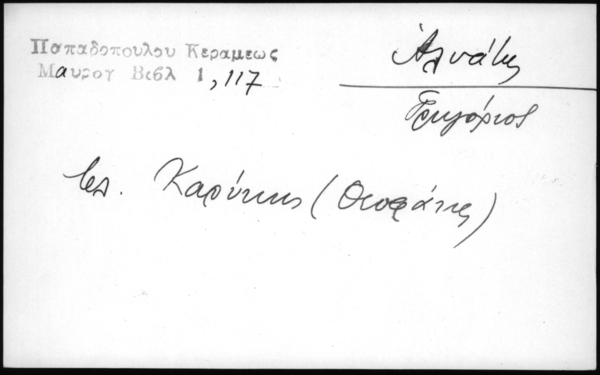 Παπαδοπουλου Κεραμεως
Μαυρογ Βιβλ 1, 117
Γρηγόριος
βλ. Καρύκης (Θεοφάνης)